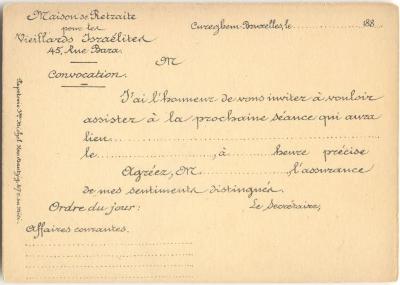 Maison de Retraite
pour les
Vieillards Israélites
45, Rue Bara.
Cureghem-Bruxelles, le ............ 188
M
Convocation.
J'ai l'honneur de vous inviter à vouloir
assister à la prochaine séance qui aura
lieu............
le............, à ............ heure précise
Agréez, M............, l'assurance
de mes sentiments distingués.
Ordre du jour:
Le Secrétaire,
Affaires courantes.